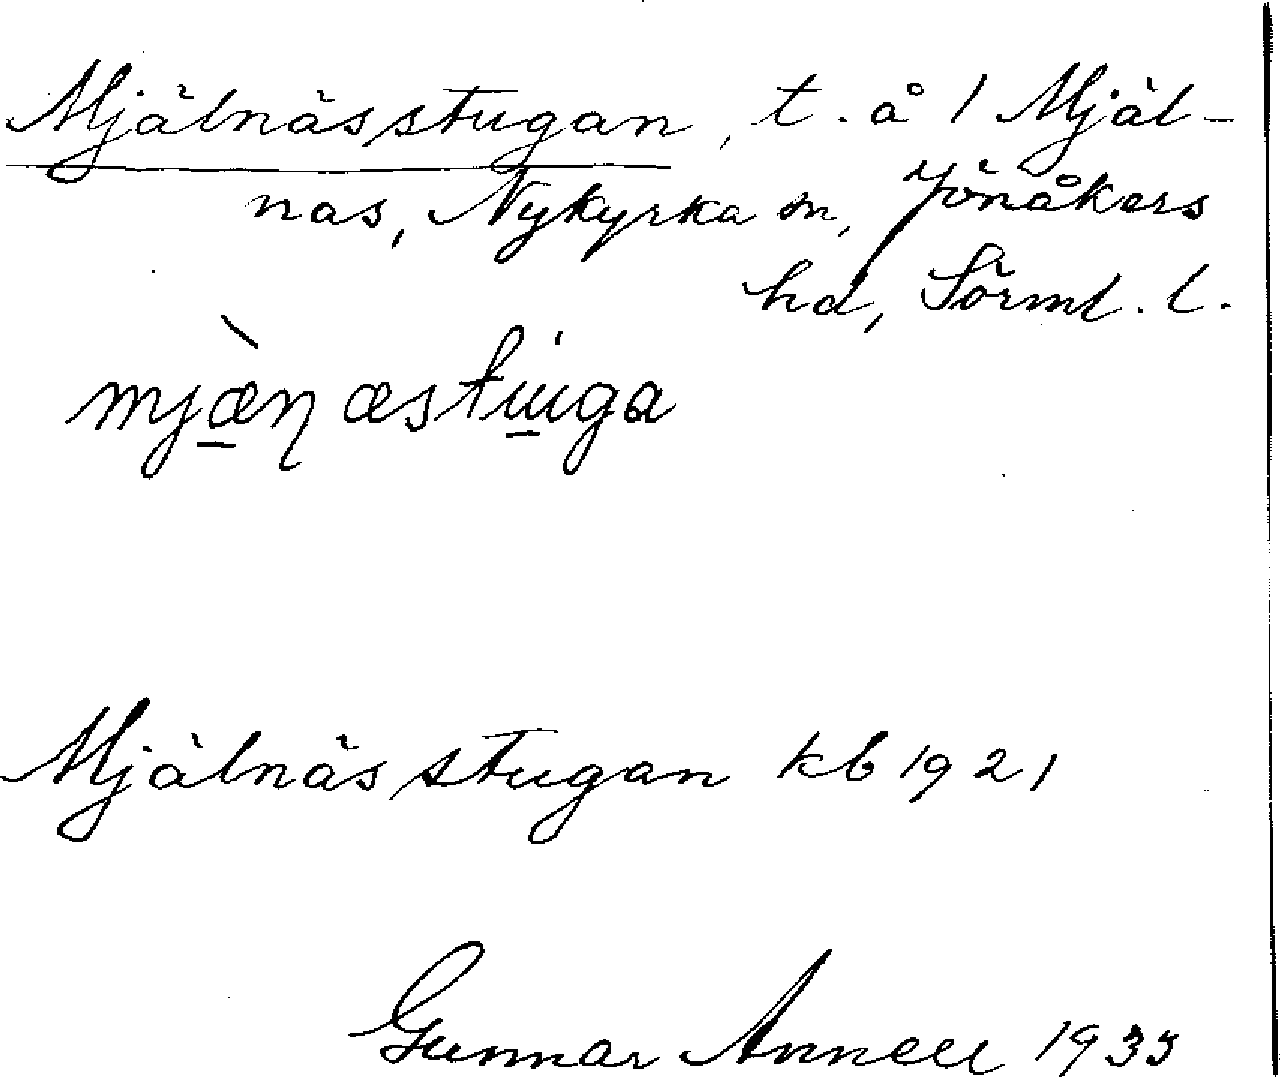 Mjälnässtugan, t. å 1 Mjäl-
nas, Nykyrka sn, Jönåkers
hd, Sörml. l.
mjæ̠̀ɳæstu̠i̠ga
Mjälnässtugan kb 1921
Gunnar Annell 1935